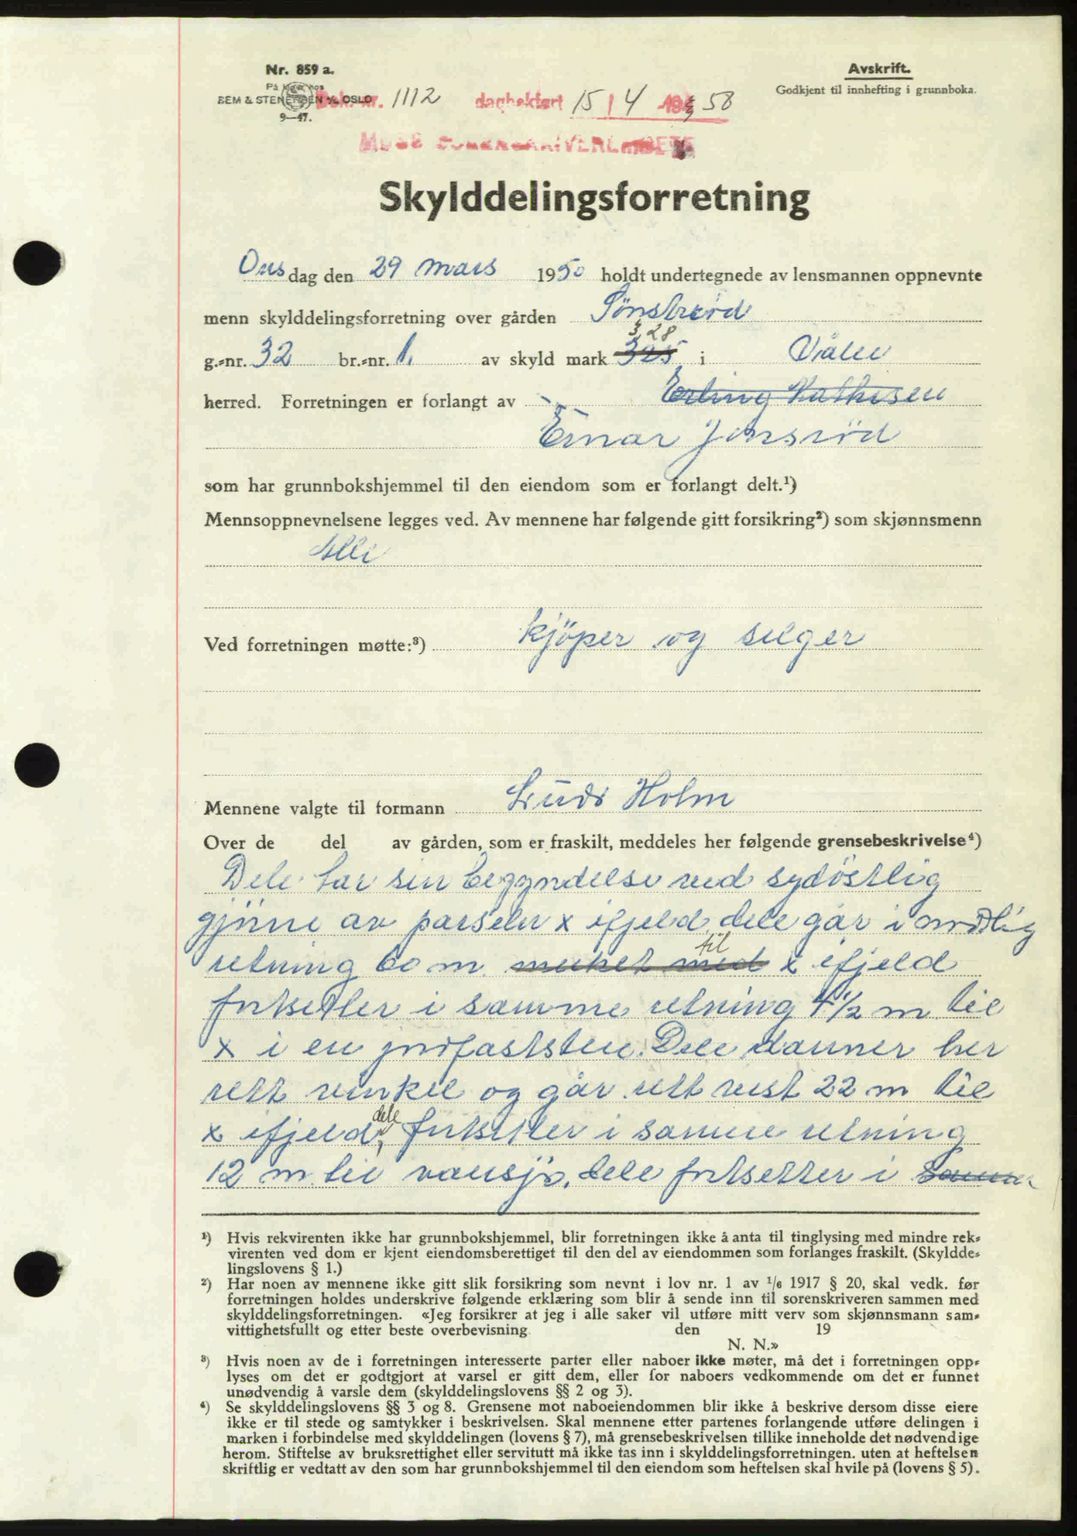 Nr. 859 a.
På lager hos
SEM & STENERSEN A/S OSLO
9—47.
Dok. nr. 1112 dagbokført 15/4 1950
MOSS SORENSKRIVEREMBETE
Avskrift.
Godkjent til innhefting i grunnboka.
Skylddelingsforretning
Onsdag den 29 mars 1950 holdt undertegnede av lensmannen oppnevnte
menn skylddelingsforretning over gården Tønsberød
3,28
g.-nr. 32 br.-nr. 1. av skyld mark 325 i Våler
herred. Forretningen er forlangt av Erling Mathisen
Einar Jonsrød
som har grunnbokshjemmel til den eiendom som er forlangt delt.¹)
Mennsoppnevnelsene legges ved. Av mennene har følgende gitt forsikring²) som skjønnsmenn
Alle
Ved forretningen møtte:³) kjöper og selger
Mennene valgte til formann Ludv Holm
Over de del av gården, som er fraskilt, meddeles her følgende grensebeskrivelse⁴)
Dele har sin begyndelse ved sydöstlig
hjørne av parselen x i fjeld, dele går i nordlig
retning 60 m merket med til x i fjeld
fortsetter i samme retning 4½ m til
x i en jordfaststen. Dele danner her
rett vinkel og går rett vest 22 m til
x i fjeld, dele fortsetter i samme retning
12 m til vansjø, dele fortsetter i samme
¹) Hvis rekvirenten ikke har grunnbokshjemmel, blir forretningen ikke å anta til tinglysing med mindre rek-
virenten ved dom er kjent eiendomsberettiget til den del av eiendommen som forlanges fraskilt. (Skyldde-
lingslovens § 1.)
²) Har noen av mennene ikke gitt slik forsikring som nevnt i lov nr. 1 av 1/6 1917 § 20, skal vedk. før
forretningen holdes underskrive følgende erklæring som blir å sende inn til sorenskriveren sammen med
skylddelingsforretningen. «Jeg forsikrer at jeg i alle saker vil utføre mitt verv som skjønnsmann sam-
vittighetsfullt og etter beste overbevisning. den 19
N. N.»
³) Hvis noen av de i forretningen interesserte parter eller naboer ikke møter, må det i forretningen opp-
lyses om det er godtgjort at varsel er gitt dem, eller for naboers vedkommende om det er funnet
unødvendig å varsle dem (skylddelingslovens §§ 2 og 3).
⁴) Se skylddelingslovens §§ 3 og 8. Grensene mot naboeiendommen blir ikke å beskrive dersom disse eiere
ikke er til stede og samtykker i beskrivelsen. Skal mennene etter partenes forlangende utføre delingen i
marken i forbindelse med skylddelingen (lovens § 7), må grensebeskrivelsen tillike inneholde det nødvendige
herom. Stiftelse av bruksrettighet eller servitutt må ikke tas inn i skylddelingsforretningen, uten at heftelsen
skriftlig er vedtatt av den som har grunnbokshjemmel til den eiendom som heftelsen skal hvile på (lovens § 5).